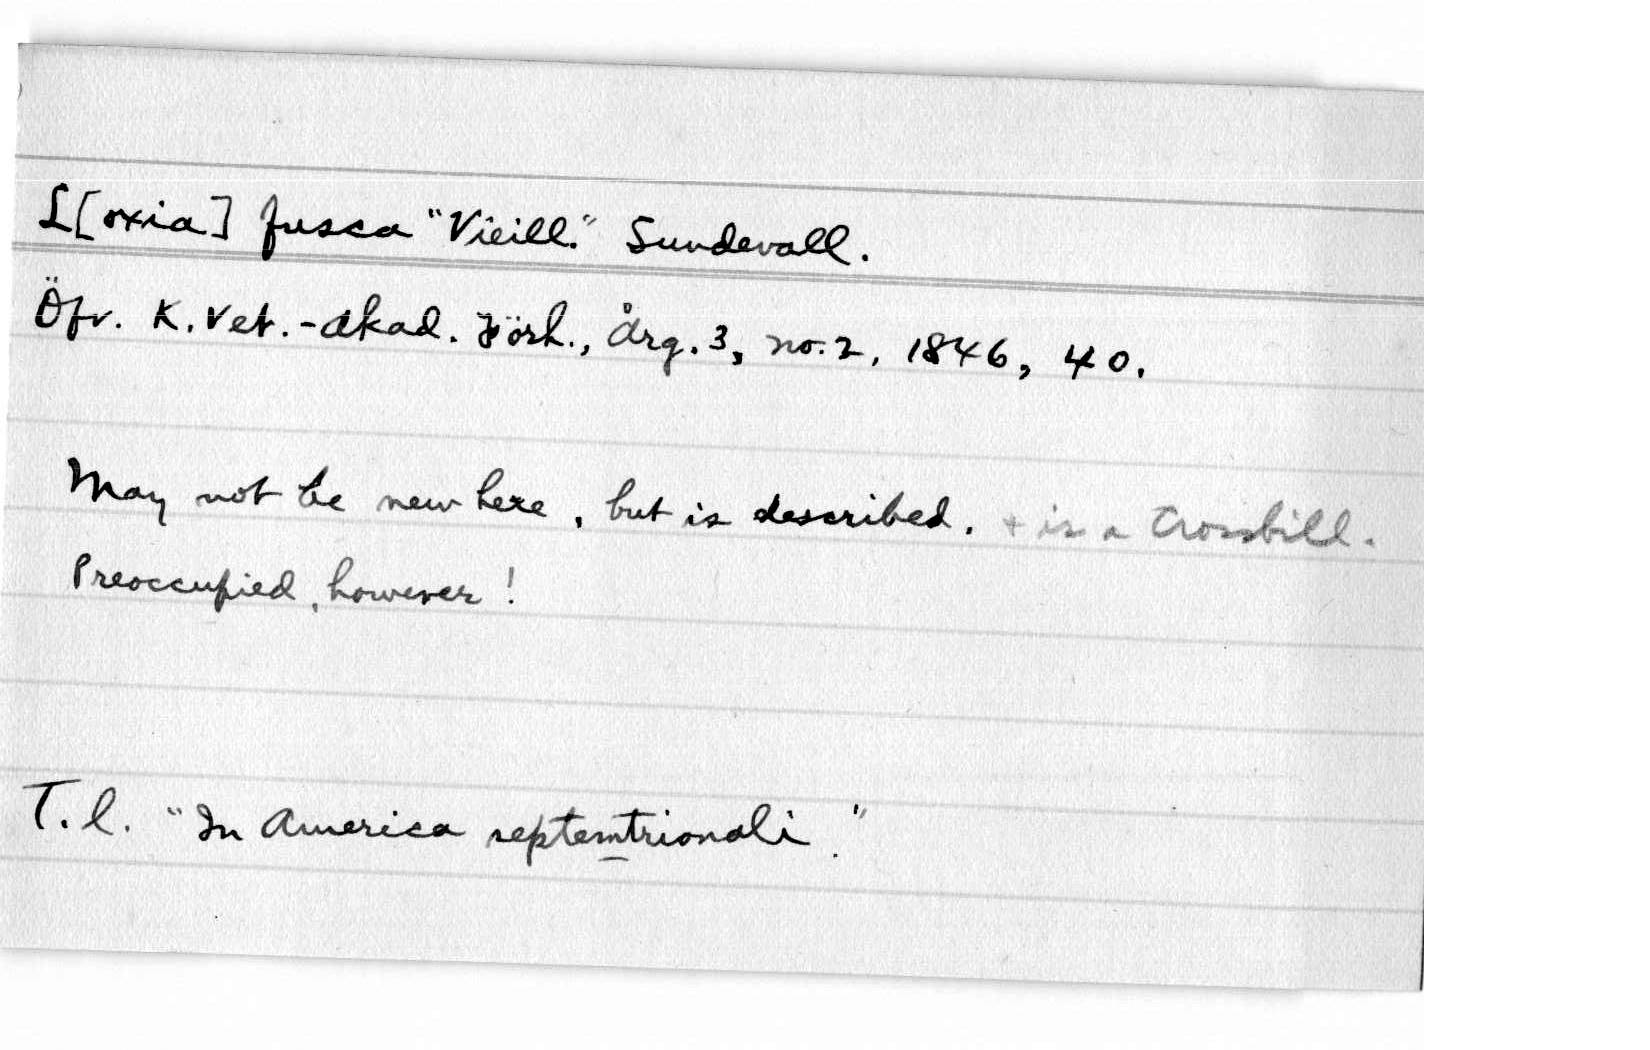 L[oxia] fusca "Vieill." Sundevall.
Öfv. K. Vet.-Akad. Förh., Årg. 3, no. 2, 1846, 40.
May not be new here, but is described. + is a Crossbill.
Preoccupied, however!
T. l. "In America septemtrionali."